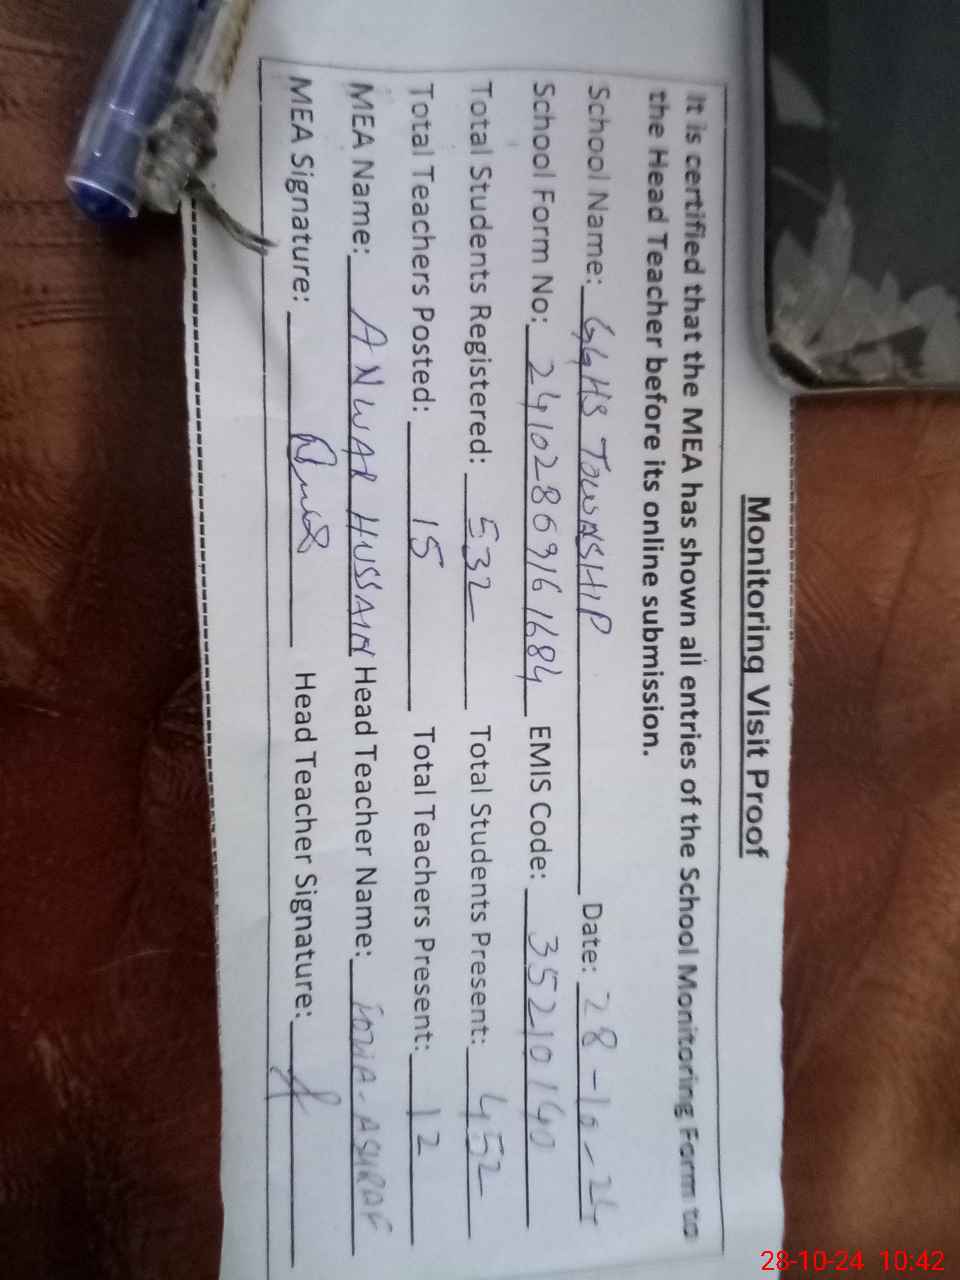 Monitoring Visit Proof
It is certified that the MEA has shown all entries of the School Monitoring Form to
the Head Teacher before its online submission.
School Name: GGHS TOWNSHIP Date: 28-10-24
School Form No: 24102869161684 EMIS Code: 35210140
Total Students Registered: 532 Total Students Present: 452
Total Teachers Posted: 15 Total Teachers Present: 12
MEA Name: ANWAR HUSSAIN Head Teacher Name: ASHRAF
MEA Signature: Head Teacher Signature:
28-10-24 10:42